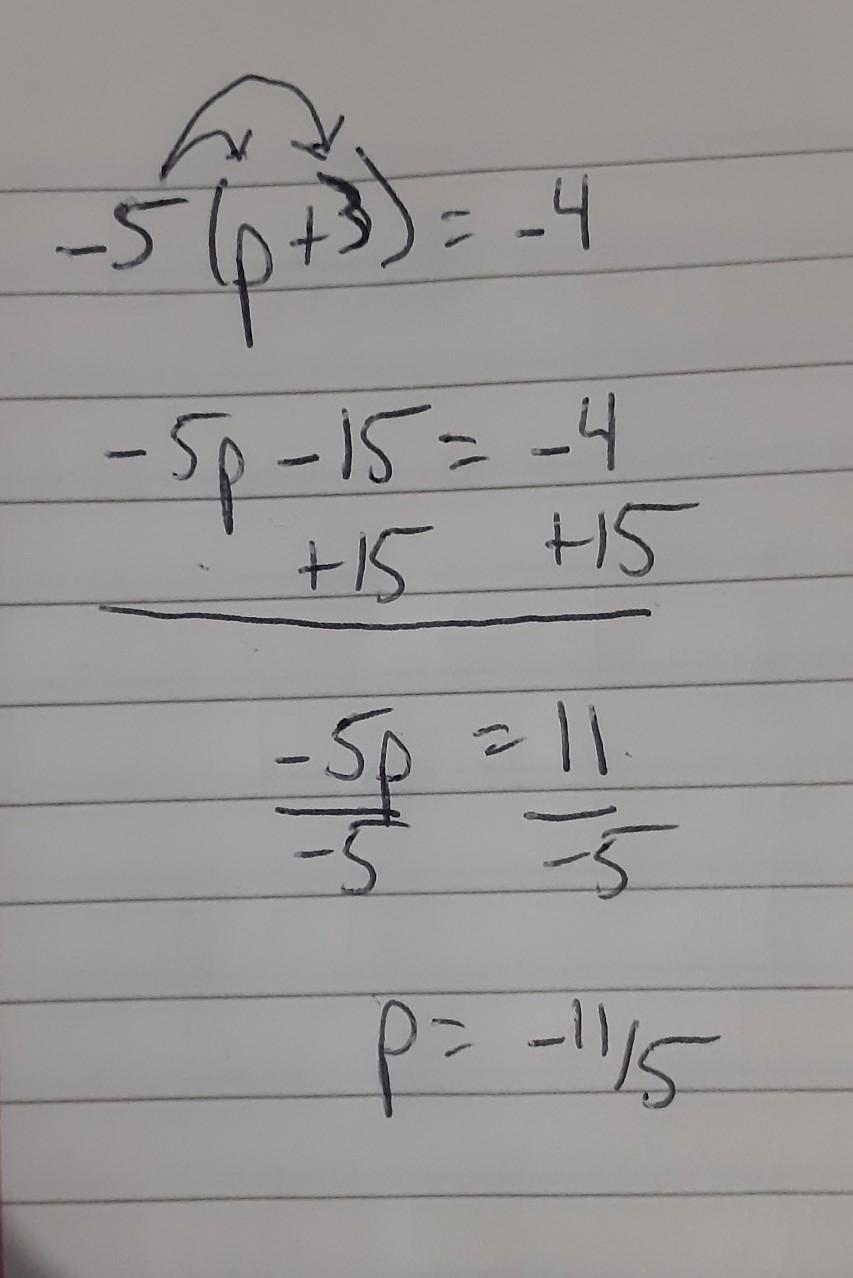 -5(p+3) = -4
-5p - 15 = -4
+15 +15
-5p = 11
-5 -5
p = -11/5